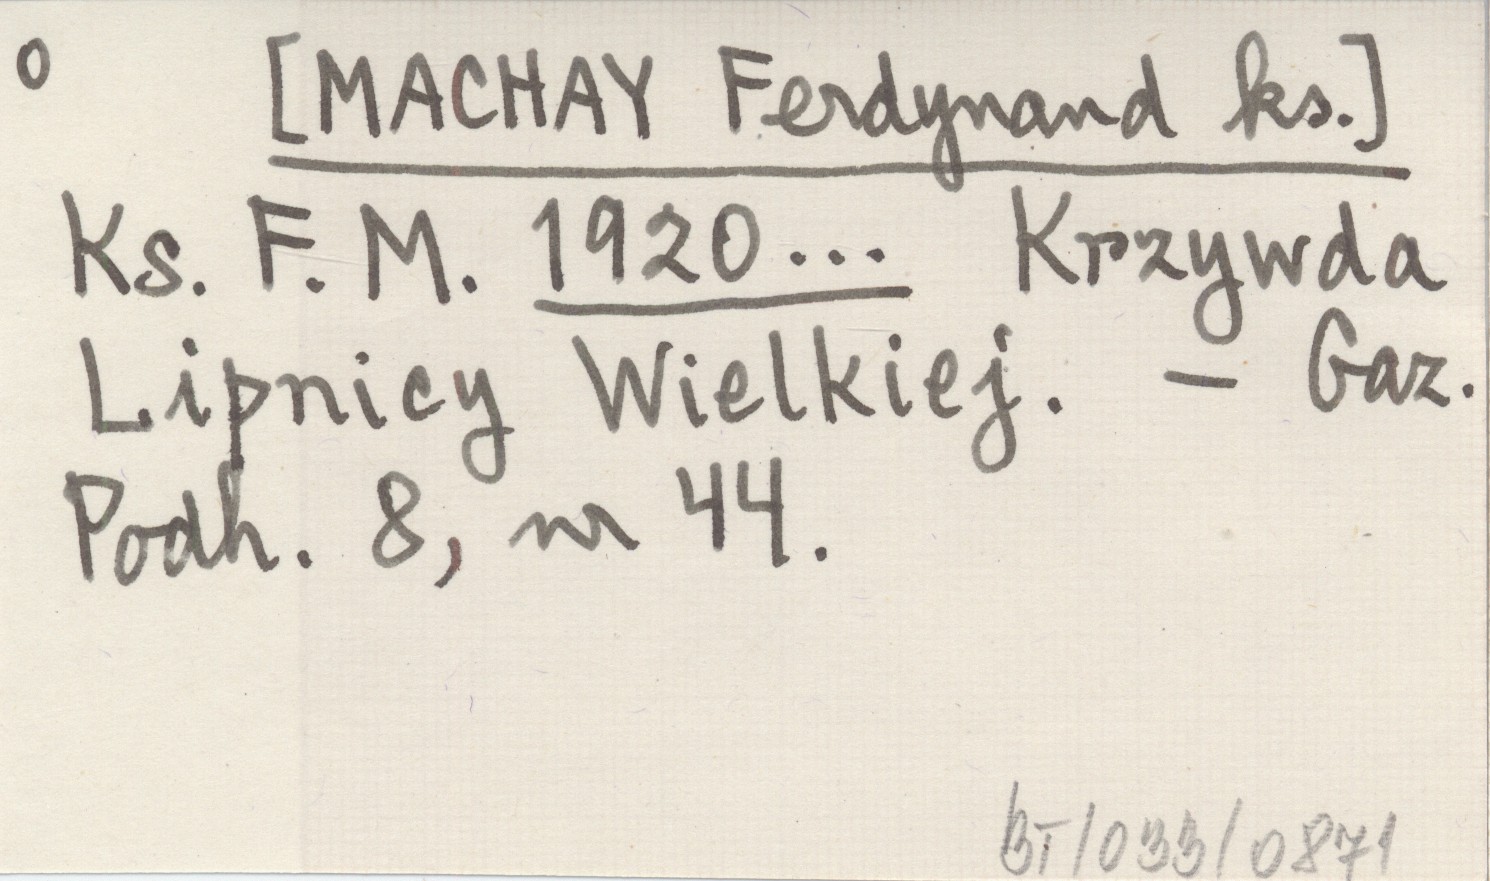 o [MACHAY Ferdynand ks.]
Ks. F. M. 1920... Krzywda
Lipnicy Wielkiej. – Gaz.
Podh. 8, nr 44.
BT/033/0871